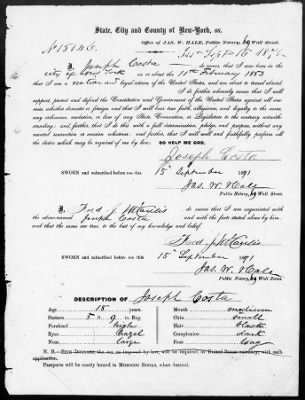 State, City and County of New-York, ss.
Office of JAS. W. HALE, Public Notary, 69 Wall Street.
No 15146. New York, Sept 15 1871
I, Joseph Costa do swear, that I was born in the
city of New York on or about the 11th February 1853
that I am a native and loyal citizen of the United States, and about to travel abroad.
I do further solemnly swear that I will
support, protect and defend the Constitution and Government of the United States against all ene-
mies, whether domestic or foreign, and that I will bear true faith, allegiance, and loyalty to the same,
any ordinance, resolution, or law of any State, Convention, or Legislature to the contrary notwith-
standing; and further, that I do this with a full determination, pledge, and purpose, without any
mental reservation or evasion whatsoever, and further, that I will well and faithfully perform all
the duties which may be required of me by law: SO HELP ME GOD.
Joseph Costa
SWORN and subscribed before me this
15 September 1871
Jas. W. Hale
Public Notary, 69 Wall Street.
I, Fred J. do swear that I am acquainted with
the above-named Joseph Costa and with the facts stated above by him;
and that the same are true, to the best of my knowledge and belief.
Fred J.
SWORN and subscribed before me this
15 September 1871
Jas. W. Hale
Public Notary, 69 Wall Street.
DESCRIPTION OF Joseph Costa
Age 18 years. Mouth medium
Stature 5 ft 9 in. Eng. Chin small
Forehead high Hair black
Eyes hazel Complexion dark
Nose large Face long
N. B. application.
Passports will be neatly bound in MOROCCO BOOKS, when desired.